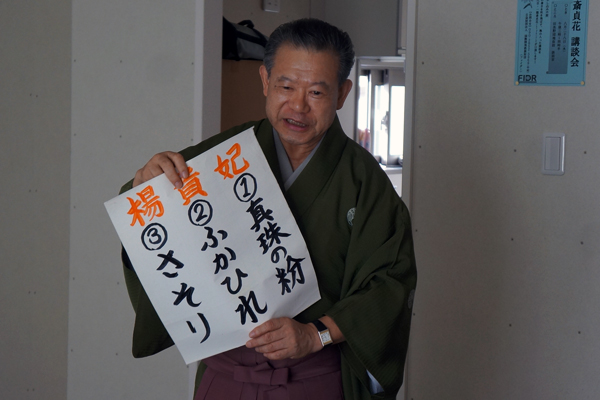 楊貴妃
①真珠の粉
②ふかひれ
③さそり
斎貞花 講談会
FIDR